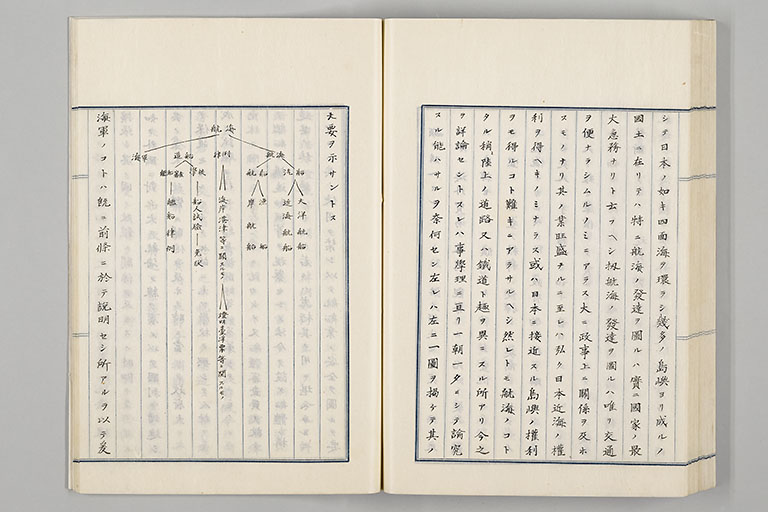 シテ日本ノ如キ四面海ヲ環ラシ幾多ノ島嶼ヨリ成ルノ
國土ニ在リテハ特ニ航海ノ發達ヲ圖ルハ實ニ國家ノ最
大急務ナリト云フヘシ抑航海ノ發達ヲ圖ルハ唯リ交通
ヲ便ナラシムルノミニアラス大ニ政事上ニ關係ヲ及ホ
スモノナリ其ノ業旺盛ナルニ至レハ弘ク日本近海ノ權
利ヲ得ヘキノミナラス或ハ日本ニ接近スル島嶼ノ權利
ヲモ得ルコト難キニアラサルヘシ然レトモ航海ノコト
タル稍陸上ノ道路又ハ鐵道ト趣ヲ異ニスル所アリ今之
ヲ詳論セントスレハ事學理ニ亘リ一朝一夕ニシテ論究
スル能ハサルヲ奈何セン左レハ左ニ一圖ヲ掲ケテ其ノ
大要ヲ示サントス
航海
汽船
大洋航船
近海航船
漁船
岸航船
海岸港津等ニ關スルモノ
燈明臺浮票等ニ關スルモノ
造船
學校
船人試驗
免狀
船律例
海軍
海軍ノコトハ既ニ前條ニ於テ説明セシ所アルヲ以テ爰